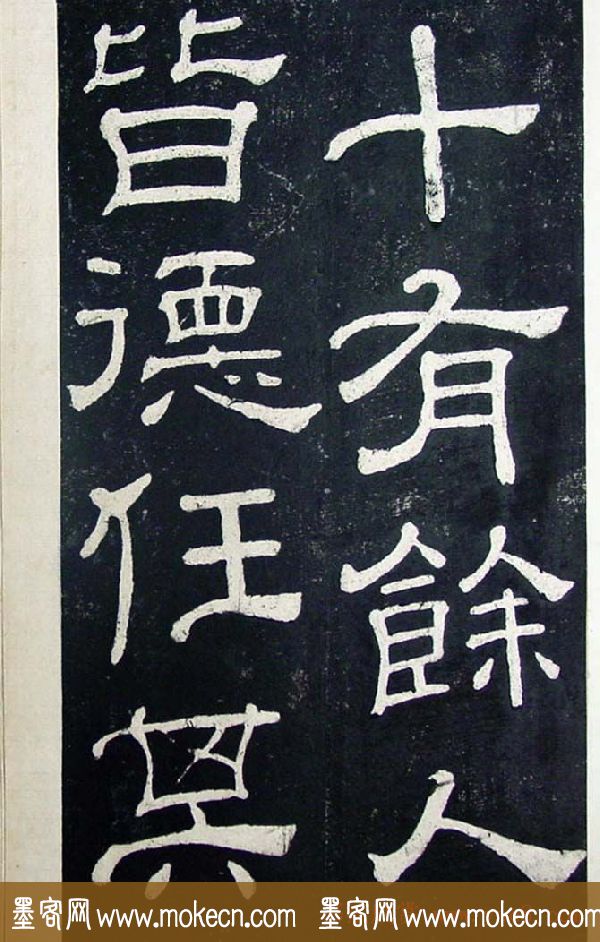 十有餘人
皆德任其
墨客网 www.mokecn.com 墨客网 www.mokecn.com